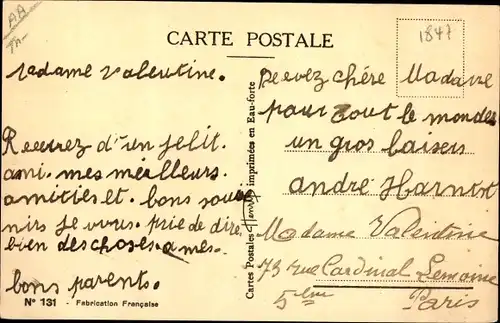 AA
CARTE POSTALE
1847
Madame Valentine.
Recevez d'un petit.
ami. mes meilleurs.
amitiés et. bons souve
nirs je vous. prie de dire
bien des choses. a mes.
bons parents.
N° 131 - Fabrication Française
Cartes Postales imprimées en Eau-forte
Recevez chère Madame
pour tout le monde
un gros baisers
andré
Madame Valentine
73 rue Cardinal Lemoine
5ème
Paris